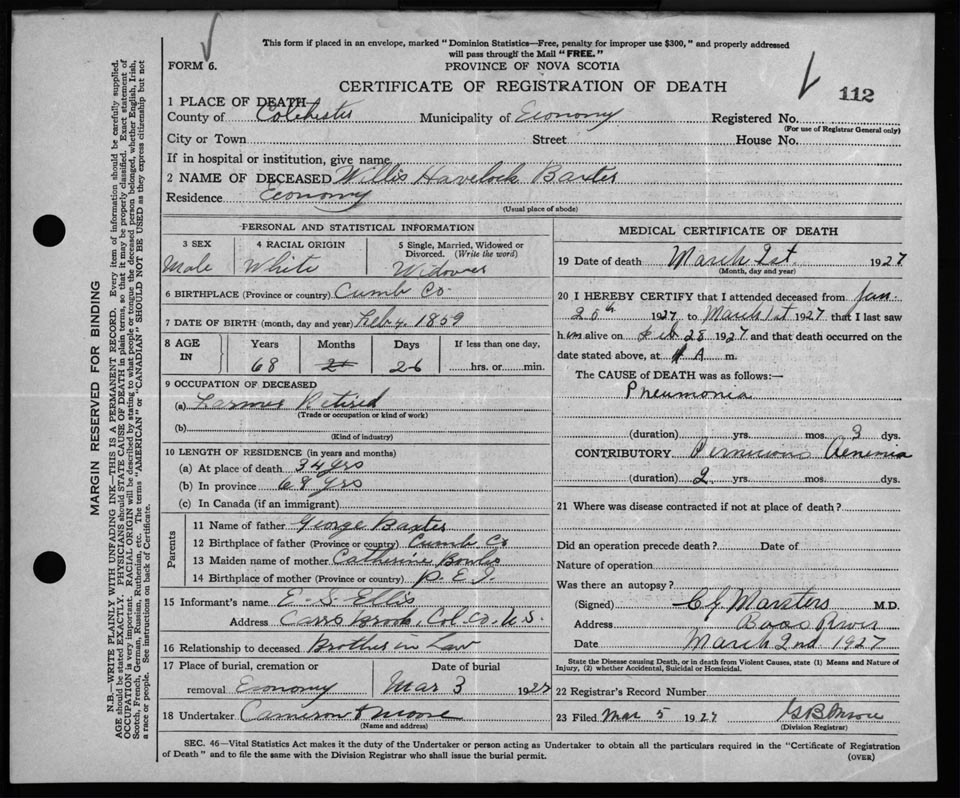 This form if placed in an envelope, marked "Dominion Statistics—Free, penalty for improper use $300," and properly addressed
will pass through the Mail "FREE."
FORM 6.
PROVINCE OF NOVA SCOTIA
CERTIFICATE OF REGISTRATION OF DEATH
112
1 PLACE OF DEATH—
County of Colchester Municipality of Economy Registered No.
(For use of Registrar General only)
City or Town Street House No.
If in hospital or institution, give name
2 NAME OF DECEASED Willis Havelock Baxter
Residence Economy
(Usual place of abode)
PERSONAL AND STATISTICAL INFORMATION
3 SEX 4 RACIAL ORIGIN 5 Single, Married, Widowed or Divorced. (Write the word)
Male White Widower
6 BIRTHPLACE (Province or country) Cumb Co
7 DATE OF BIRTH (month, day and year) Feb 4, 1859
8 AGE IN Years Months Days If less than one day,
68 26 hrs. or min.
9 OCCUPATION OF DECEASED
(a) Farmer Retired
(Trade or occupation or kind of work)
(b)
(Kind of industry)
10 LENGTH OF RESIDENCE (in years and months)
(a) At place of death 34 yrs
(b) In province 68 yrs
(c) In Canada (if an immigrant)
Parents
11 Name of father George Baxter
12 Birthplace of father (Province or country) Cumb Co
13 Maiden name of mother Catherine
14 Birthplace of mother (Province or country) P. E. I.
15 Informant's name E. S. Ellis
Address Carrs Brook, Col. Co. N.S.
16 Relationship to deceased Brother in Law
17 Place of burial, cremation or Date of burial
removal Economy Mar 3 1927
18 Undertaker Cameron & Moore
(Name and address)
MEDICAL CERTIFICATE OF DEATH
19 Date of death March 1st. 1927
(Month, day and year)
20 I HEREBY CERTIFY that I attended deceased from Jan.
25th 1927 to March 1st 1927 that I last saw
him alive on Feb 28 1927 and that death occurred on the
date stated above, at A m.
The CAUSE of DEATH was as follows:—
Pneumonia
(duration) yrs. mos. 3 dys.
CONTRIBUTORY Pernicious Aenemia
(duration) 2 yrs. mos. dys.
21 Where was disease contracted if not at place of death?
Did an operation precede death? Date of
Nature of operation
Was there an autopsy?
(Signed) Marsters M.D.
Address Bass River
Date March 2nd 1927
State the Disease causing Death, or in death from Violent Causes, state (1) Means and Nature of
Injury, (2) whether Accidental, Suicidal or Homicidal.
22 Registrar's Record Number
23 Filed Mar 5 1927
(Division Registrar)
SEC. 46—Vital Statistics Act makes it the duty of the Undertaker or person acting as Undertaker to obtain all the particulars required in the "Certificate of Registration
of Death" and to file the same with the Division Registrar who shall issue the burial permit.
(OVER)
MARGIN RESERVED FOR BINDING
N.B.—WRITE PLAINLY WITH UNFADING INK—THIS IS A PERMANENT RECORD. Every item of information should be carefully supplied.
AGE should be stated EXACTLY. PHYSICIANS should STATE CAUSE OF DEATH in plain terms, so that it may be properly classified. Exact statement of
OCCUPATION is very important. RACIAL ORIGIN will be described by stating to what people or tongue the deceased person belonged, whether English, Irish,
Scotch, French, German, Russian, Ruthenian, etc. The terms "AMERICAN" or "CANADIAN" SHOULD NOT BE USED as they express citizenship but not
a race or people. See instructions on back of Certificate.